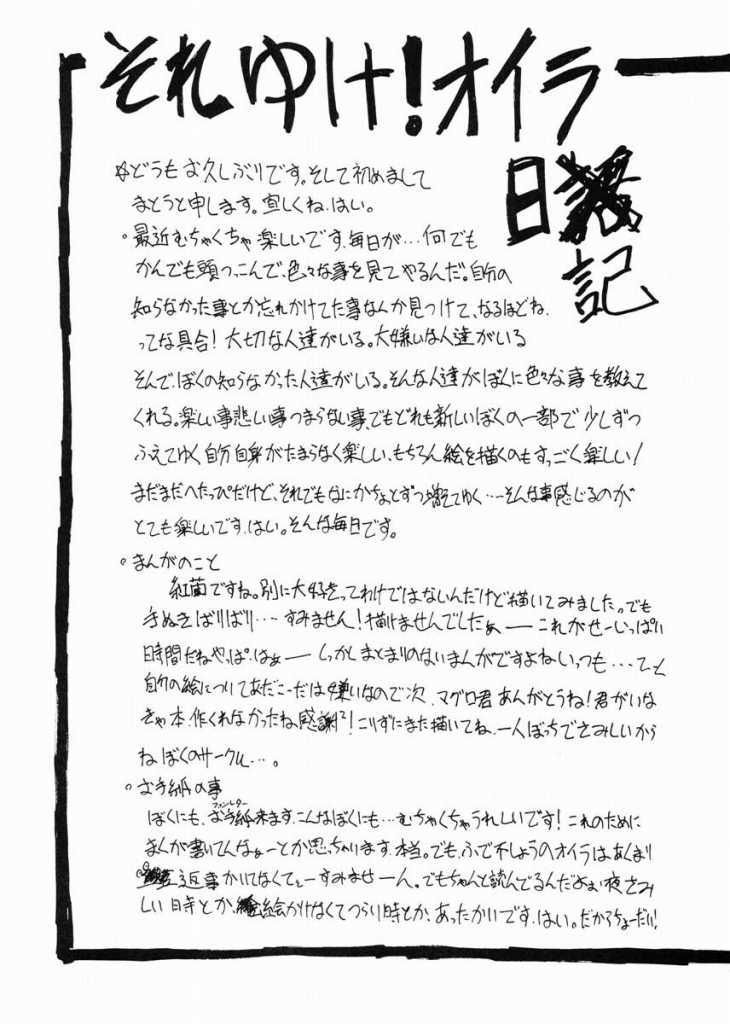 それゆけ!オイラ
日記
☆どうもお久しぶりです。そして初めまして
まとうと申します。宜しくね。はい。
・最近むちゃくちゃ楽しいです、毎日が…何でも
かんでも頭つっこんで、色々な事を見てやるんだ。自分の
知らなかった事とか忘れかけてた事なんか見つけて、なるほどね、
ってな具合!大切な人達がいる。大嫌いな人達がいる
そんで、ぼくの知らなかった人達がいる。そんな人達がぼくに色々な事を教えて
くれる。楽しい事悲しい事つまらない事、でもどれも新しいぼくの一部で少しずつ
ふえてゆく自分自身がたまらなく楽しい、もちろん絵を描くのもすっごく楽しい!
まだまだへたっぴだけど、それでもなにかちょっとずつ増えてゆく…そんな事感じるのが
とても楽しいです、はい。そんな毎日です。
・まんがのこと
紅菌ですね。別に大好きってわけではないんだけど描いてみました。でも
手ぬきばりばり…すみません!描けませんでしたぁーこれがせーいっぱい
時間だねやっぱ、はぁーしっかしまとまりのないまんがですよねいつも…てっと
自分の絵についてあだこーだは嫌いなので次、マグロ君ありがとうね!君がいな
きゃ本、作くれなかったね感謝!こりずにまた描いてね、一人ぼっちでさみしいから
ねぼくのサークル…。
・お手紙の事
ぼくにも、お手紙ファンレター来ます、こんなぼくにも…むちゃくちゃうれしいです!これのために
まんが書いてんなぁーとか思っちゃいます、本当。でも、ふで不しょうのオイラはあくまり
返事かいてなくてぇーすみませーん。でもちゃんと読んでるんだよぉ夜さみ
しい時とか、絵かけなくてつらい時とか、あったかいです、はい。だからちょーだい!